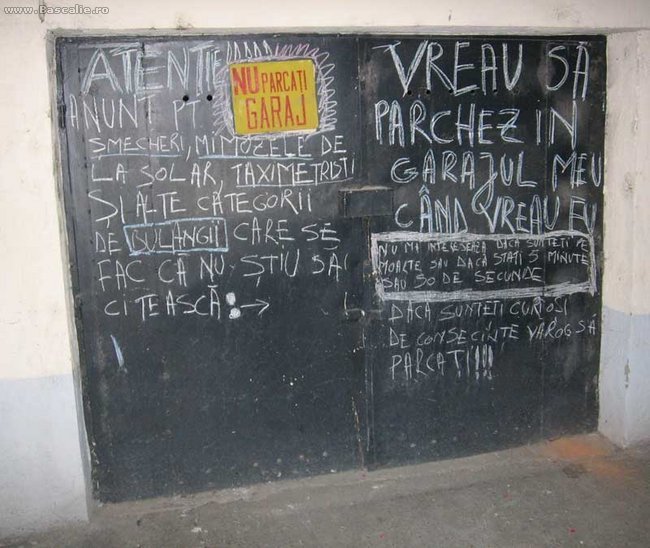 www.Bascalie.ro
ATENȚIE
NU PARCAȚI
GARAJ
ANUNT PT
SMECHERI, MIMOZELE DE
LA SOLAR, TAXIMETRIȘTI
ȘI ALTE CATEGORII
DE CARE SE
FAC CĂ NU ȘTIU SĂ
CITEASCĂ: →
VREAU SĂ
PARCHEZ IN
GARAJUL MEU
CÂND VREAU EU
NU MĂ INTERESEAZĂ DACĂ SUNTEȚI PE
MOACTE SAU DACĂ STAȚI 5 MINUTE
SAU 50 DE SECUNDE
DACĂ SUNTEȚI CURIOȘI
DE CONSECINȚE VĂ ROG SĂ
PARCAȚI!!!